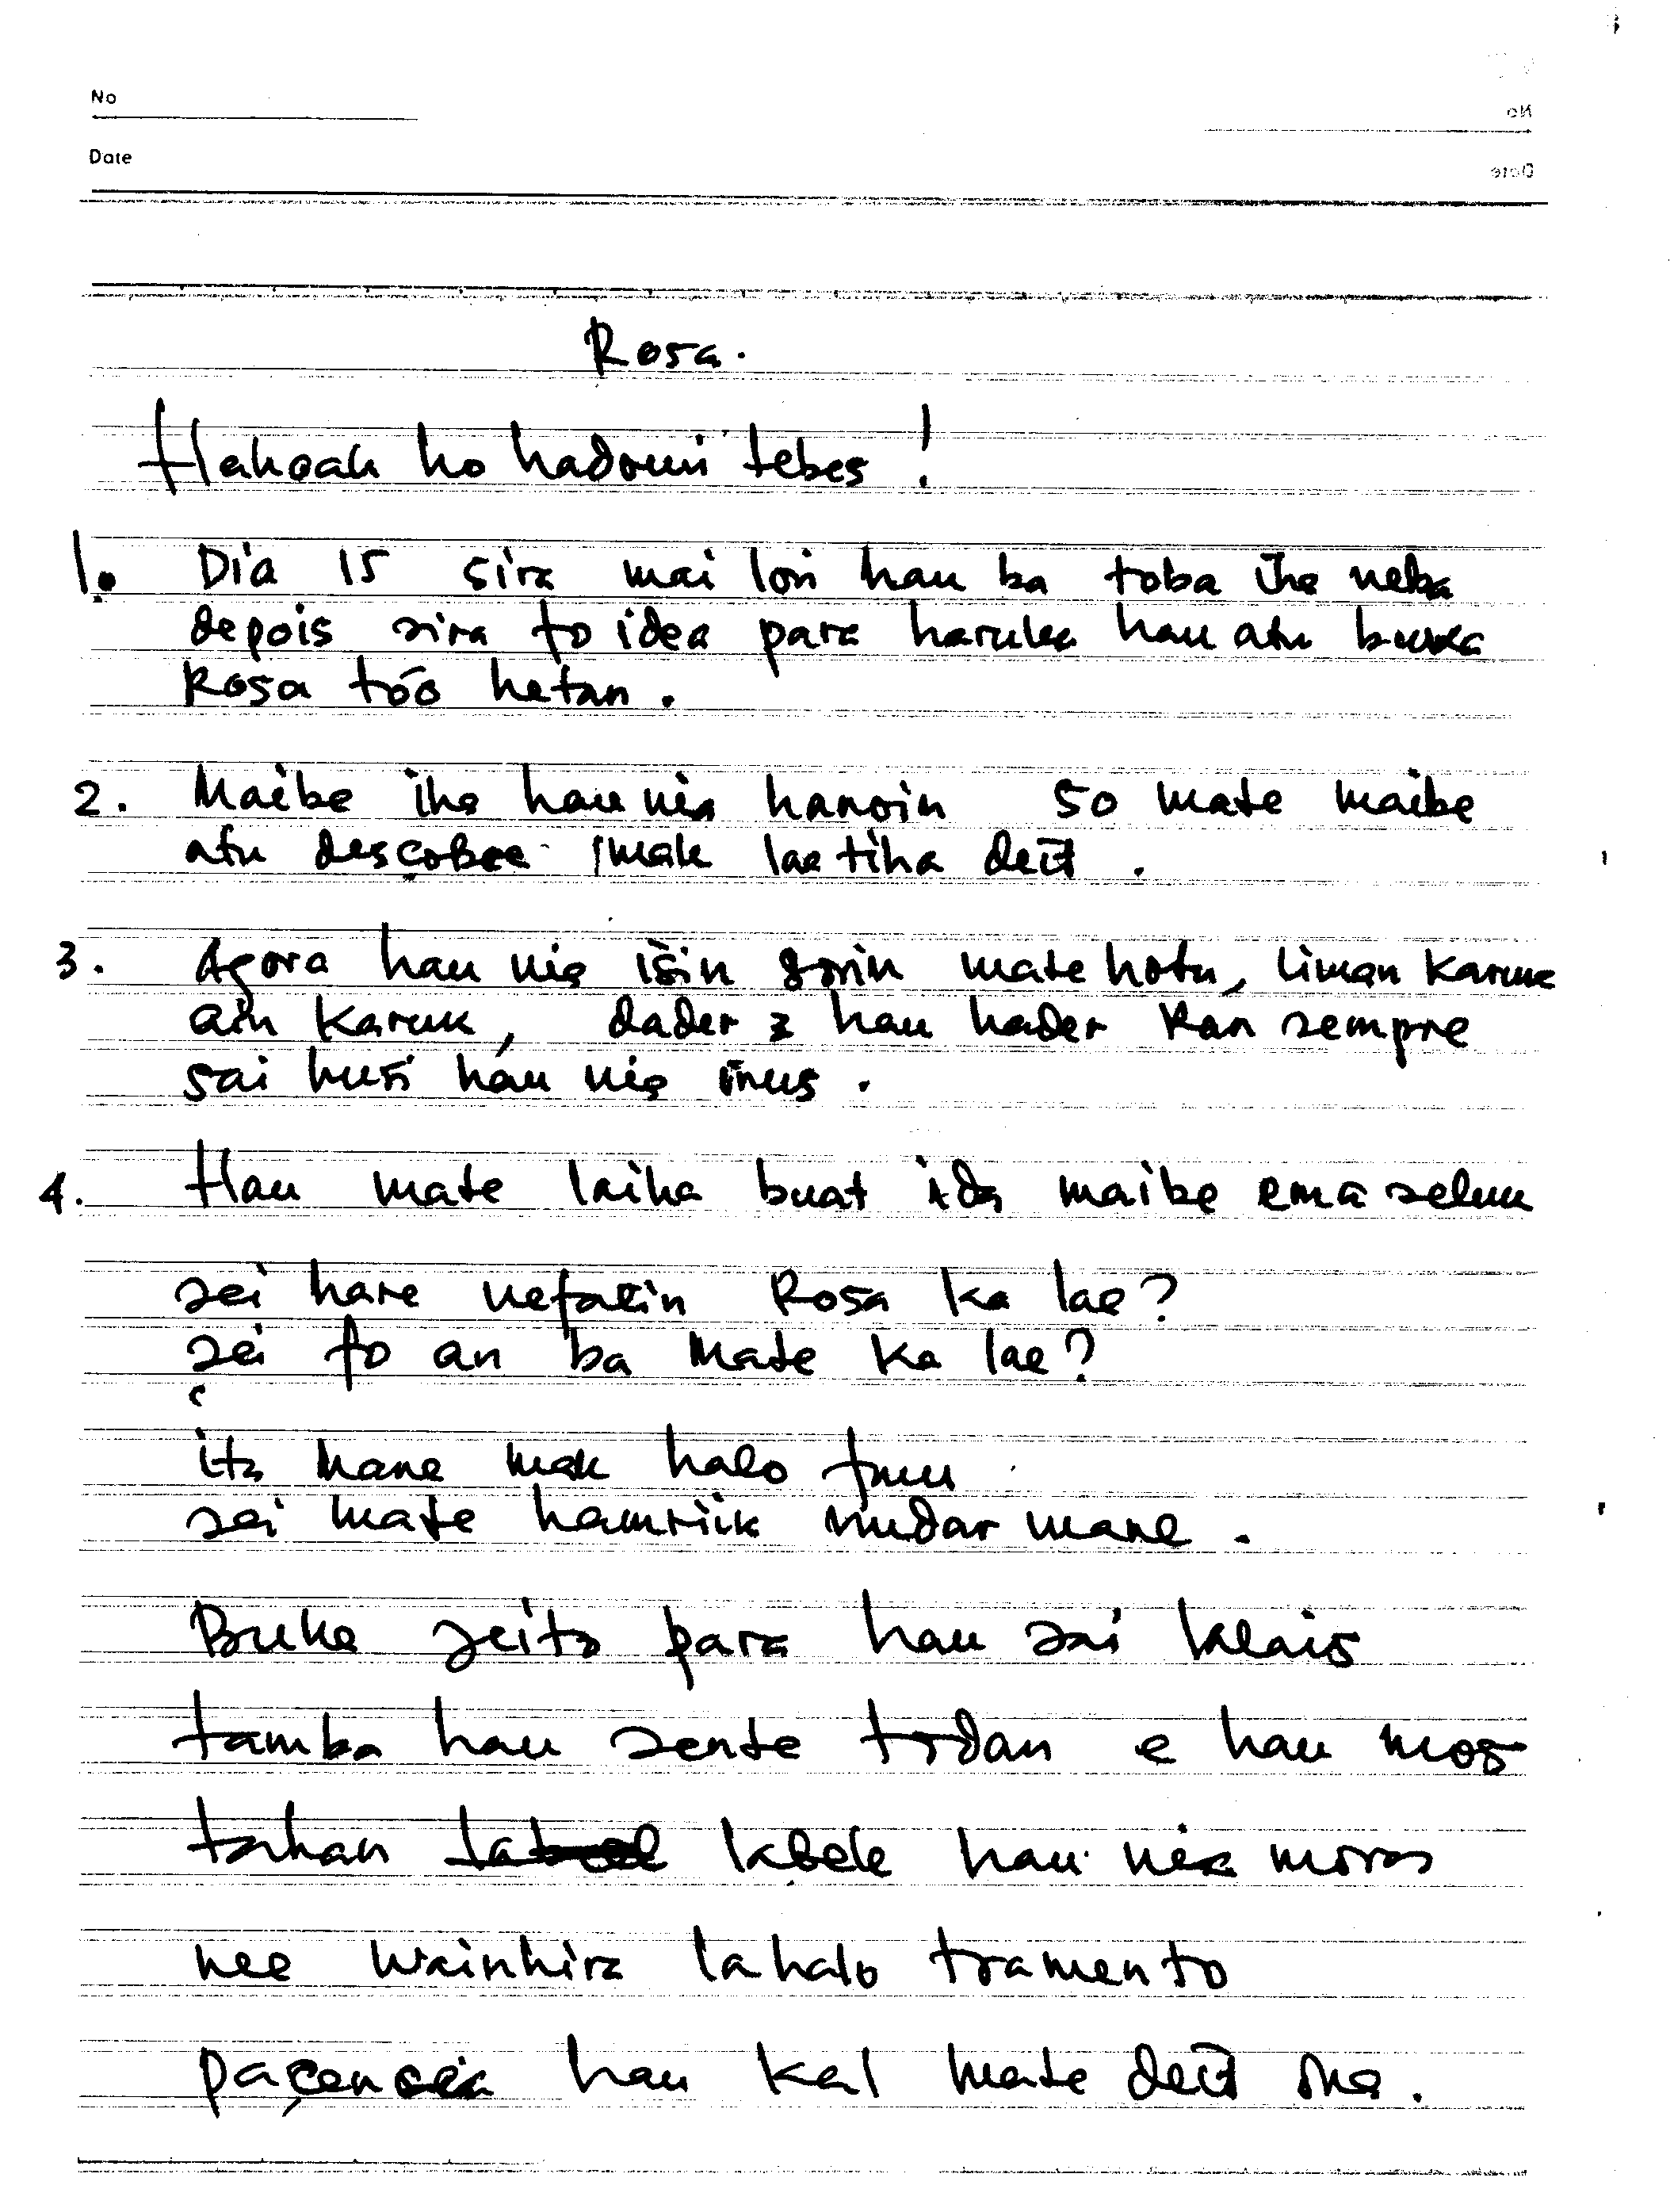 No
Date
Rosa.
Hakoak ho hadomi tebes!
1. Dia 15 sira mai lori hau ba toba iha neba
depois sira fo idea para haruka hau atu buka
Rosa tóo hetan.
2. Maibe iha hau nia hanoin so mate maibe
atu descobre mak lae tiha deit.
3. Agora hau nia isin sorin mate hotu, liman karuk
ain karuk, dader 2 hau hader ran sempre
sai husi hau nia inus.
4. Hau mate laiha buat ida maibe ema seluk
sei hare nefatin Rosa ka lae?
sei fo an ba mate ka lae?
ita mane mak halo funu
sei mate hamriik nudar mane.
Buka jeito para hau sai lalais
tamba hau sente todan e hau mos
tahan labele hau nia moras
nee wainhira la halo tramento
paçencia hau kal mate deit ona.